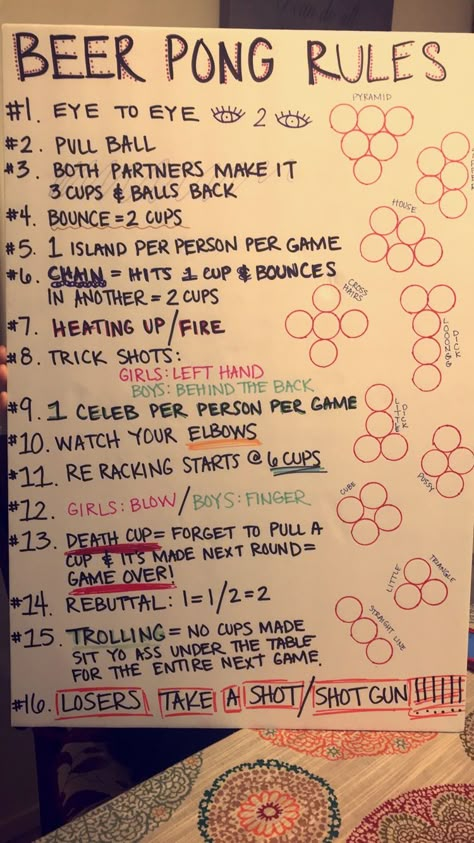 BEER PONG RULES
#1. EYE TO EYE 2
#2. PULL BALL
#3. BOTH PARTNERS MAKE IT
3 CUPS & BALLS BACK
#4. BOUNCE = 2 CUPS
#5. 1 ISLAND PER PERSON PER GAME
#6. CHAIN = HITS 1 CUP & BOUNCES
IN ANOTHER = 2 CUPS
#7. HEATING UP/FIRE
#8. TRICK SHOTS:
GIRLS: LEFT HAND
BOYS: BEHIND THE BACK
#9. 1 CELEB PER PERSON PER GAME
#10. WATCH YOUR ELBOWS
#11. RE RACKING STARTS @ 6 CUPS
#12. GIRLS: BLOW/BOYS: FINGER
#13. DEATH CUP = FORGET TO PULL A
CUP & IT'S MADE NEXT ROUND =
GAME OVER!
#14. REBUTTAL: 1=1/2=2
#15. TROLLING = NO CUPS MADE
SIT YO ASS UNDER THE TABLE
FOR THE ENTIRE NEXT GAME.
#16. LOSERS TAKE A SHOT/SHOTGUN !!!!!!
PYRAMID
HOUSE
CROSS
HAIRS
DICK
LITTLE
DICK
PUSSY
CUBE
LITTLE TRIANGLE
STRAIGHT LINE